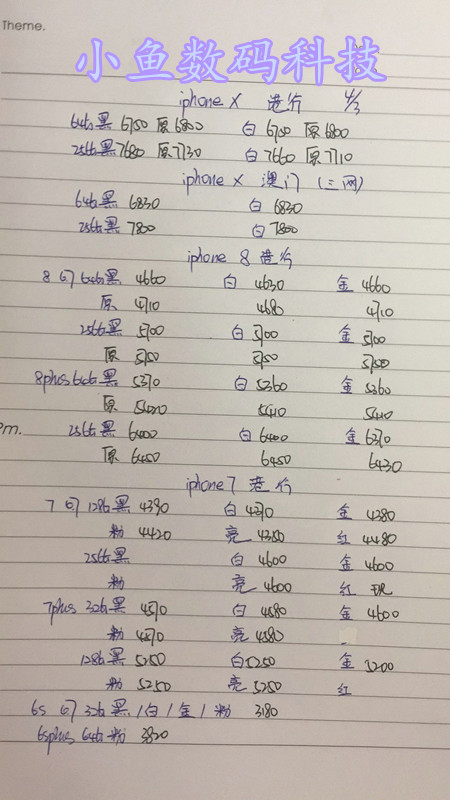 Theme.
小鱼数码科技
iphone X 港行 4/3
64G黑 6750 原6800 白 6750 原6800
256G黑 7680 原7730 白 7660 原7710
iphone X 澳门 (三网)
64G黑 6830 白 6830
256G黑 7800 白 7800
iphone 8 港行
8代 64G黑 4660 白 4630 金 4660
原 4710 4680 4710
256G黑 5700 白 5700 金 5700
原 5750 5750 5750
8plus 64G黑 5370 白 5360 金 5360
原 5410 5410
pm. 256G黑 6400 白 6400 金 6370
原 6450 6450 6430
iphone7 港行
7代 128G黑 4390 白 4370 金 4380
粉 4420 亮 4350 红 4480
256G黑 白 4600 金 4600
粉 亮 4600 红 现
7plus 32G黑 4570 白 4580 金 4600
粉 4570 亮 4580
128G黑 5250 白 5250 金 5200
粉 5250 亮 5250 红
6S代 32G黑/白/金/粉 3180
6splus 64G粉 3820